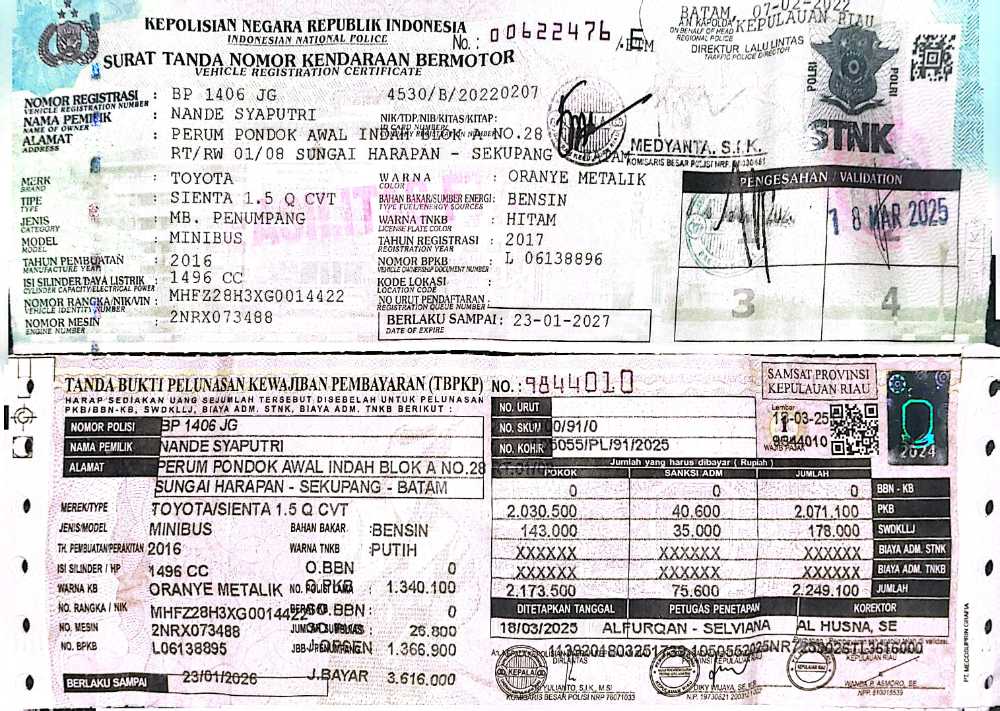 KEPOLISIAN NEGARA REPUBLIK INDONESIA
INDONESIAN NATIONAL POLICE
No.: 00622476 E
/BTM
BATAM, 07-02-2022
A.N KAPOLDA KEPULAUAN RIAU
ON BEHALF OF HEAD
REGIONAL POLICE
DIREKTUR LALU LINTAS
TRAFFIC POLICE DIRECTOR
SURAT TANDA NOMOR KENDARAAN BERMOTOR
VEHICLE REGISTRATION CERTIFICATE
POLRI
POLRI
STNK
NOMOR REGISTRASI : BP 1406 JG 4530/B/20220207
VEHICLE REGISTRATION NUMBER
NAMA PEMILIK : NANDE SYAPUTRI NIK/TDP/NIB/KITAS/KITAP:
NAME OF OWNER
ALAMAT : PERUM PONDOK AWAL INDAH BLOK A NO.28
ADDRESS
RT/RW 01/08 SUNGAI HARAPAN - SEKUPANG - BATAM
MEDYANTA, S.I.K.
KOMISARIS BESAR POLISI NRP.
MERK : TOYOTA
BRAND
WARNA : ORANYE METALIK
COLOR
TIPE : SIENTA 1.5 Q CVT
TYPE
BAHAN BAKAR/SUMBER ENERGI : BENSIN
TYPE FUEL/ENERGY SOURCES
JENIS : MB. PENUMPANG
CATEGORY
WARNA TNKB : HITAM
LICENSE PLATE COLOR
MODEL : MINIBUS
MODEL
TAHUN REGISTRASI : 2017
REGISTRATION YEAR
TAHUN PEMBUATAN : 2016
MANUFACTURE YEAR
NOMOR BPKB : L 06138896
VEHICLE OWNERSHIP DOCUMENT NUMBER
ISI SILINDER/DAYA LISTRIK : 1496 CC
CYLINDER CAPACITY/ELECTRICAL POWER
KODE LOKASI :
LOCATION CODE
NOMOR RANGKA/NIK/VIN : MHFZ28H3XG0014422
VEHICLE IDENTITY NUMBER
NO URUT PENDAFTARAN :
REGISTRATION QUEUE NUMBER
NOMOR MESIN : 2NRX073488
ENGINE NUMBER
BERLAKU SAMPAI : 23-01-2027
DATE OF EXPIRE
PENGESAHAN / VALIDATION
18 MAR 2025
3
4
TANDA BUKTI PELUNASAN KEWAJIBAN PEMBAYARAN (TBPKP) NO.: 9844010
HARAP SEDIAKAN UANG SEJUMLAH TERSEBUT DISEBELAH UNTUK PELUNASAN
PKB/BBN-KB, SWDKLLJ, BIAYA ADM. STNK, BIAYA ADM. TNKB BERIKUT :
SAMSAT PROVINSI
KEPULAUAN RIAU
Lembar
1
WAJIB PAJAK
18-03-25
9844010
2024
NO. URUT
NO. SKUM 0/91/0
NO. KOHIR 5055/PL/91/2025
NOMOR POLISI BP 1406 JG
NAMA PEMILIK NANDE SYAPUTRI
ALAMAT PERUM PONDOK AWAL INDAH BLOK A NO.28
SUNGAI HARAPAN - SEKUPANG - BATAM
MEREK/TYPE : TOYOTA/SIENTA 1.5 Q CVT
JENIS/MODEL MINIBUS BAHAN BAKAR :BENSIN
TH. PEMBUATAN/PERAKITAN 2016 WARNA TNKB :PUTIH
ISI SILINDER / HP 1496 CC O.BBN 0
WARNA KB ORANYE METALIK NO. POLISI LAMA : O.PKB 1.340.100
NO. RANGKA / NIK MHFZ28H3XG0014422 BBN : 0
NO. MESIN 2NRX073488 26.800
NO. BPKB L06138895 1.366.900
BERLAKU SAMPAI 23/01/2026 J.BAYAR 3.616.000
Jumlah yang harus dibayar ( Rupiah )
POKOK SANKSI ADM JUMLAH
0 0 0 BBN - KB
2.030.500 40.600 2.071.100 PKB
143.000 35.000 178.000 SWDKLLJ
XXXXXX XXXXXX XXXXXX BIAYA ADM. STNK
XXXXXX XXXXXX XXXXXX BIAYA ADM. TNKB
2.173.500 75.600 2.249.100 JUMLAH
DITETAPKAN TANGGAL PETUGAS PENETAPAN KOREKTOR
18/03/2025 ALFURQAN - SELVIANA AL HUSNA, SE
DIRLANTAS
KEPALA
KEPULAUAN RIAU
YULIANTO, S.I.K., M.Si
KOMISARIS BESAR POLISI NRP 76071033
DIKY WIJAYA, SE.
PT. MEGOSUPRIN GRAFIA